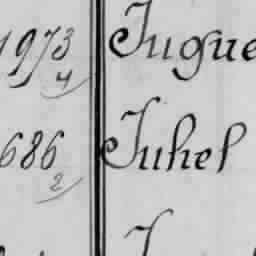 1973 Jugue
4
686 Juhel
2